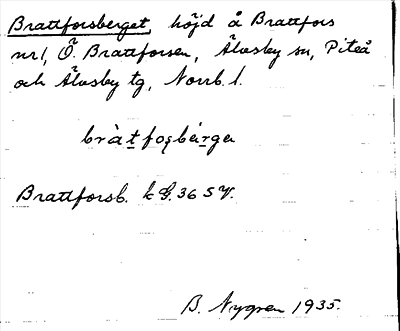 Brattforsberget, höjd å Brattfors
nr1, Ö. Brattforsen, Älvsby sn, Piteå
och Älvsby tg, Norrb. l.
bràtfoʂbærgə
Brattforsb. k G. 36 S V.
B. Nygren 1935.